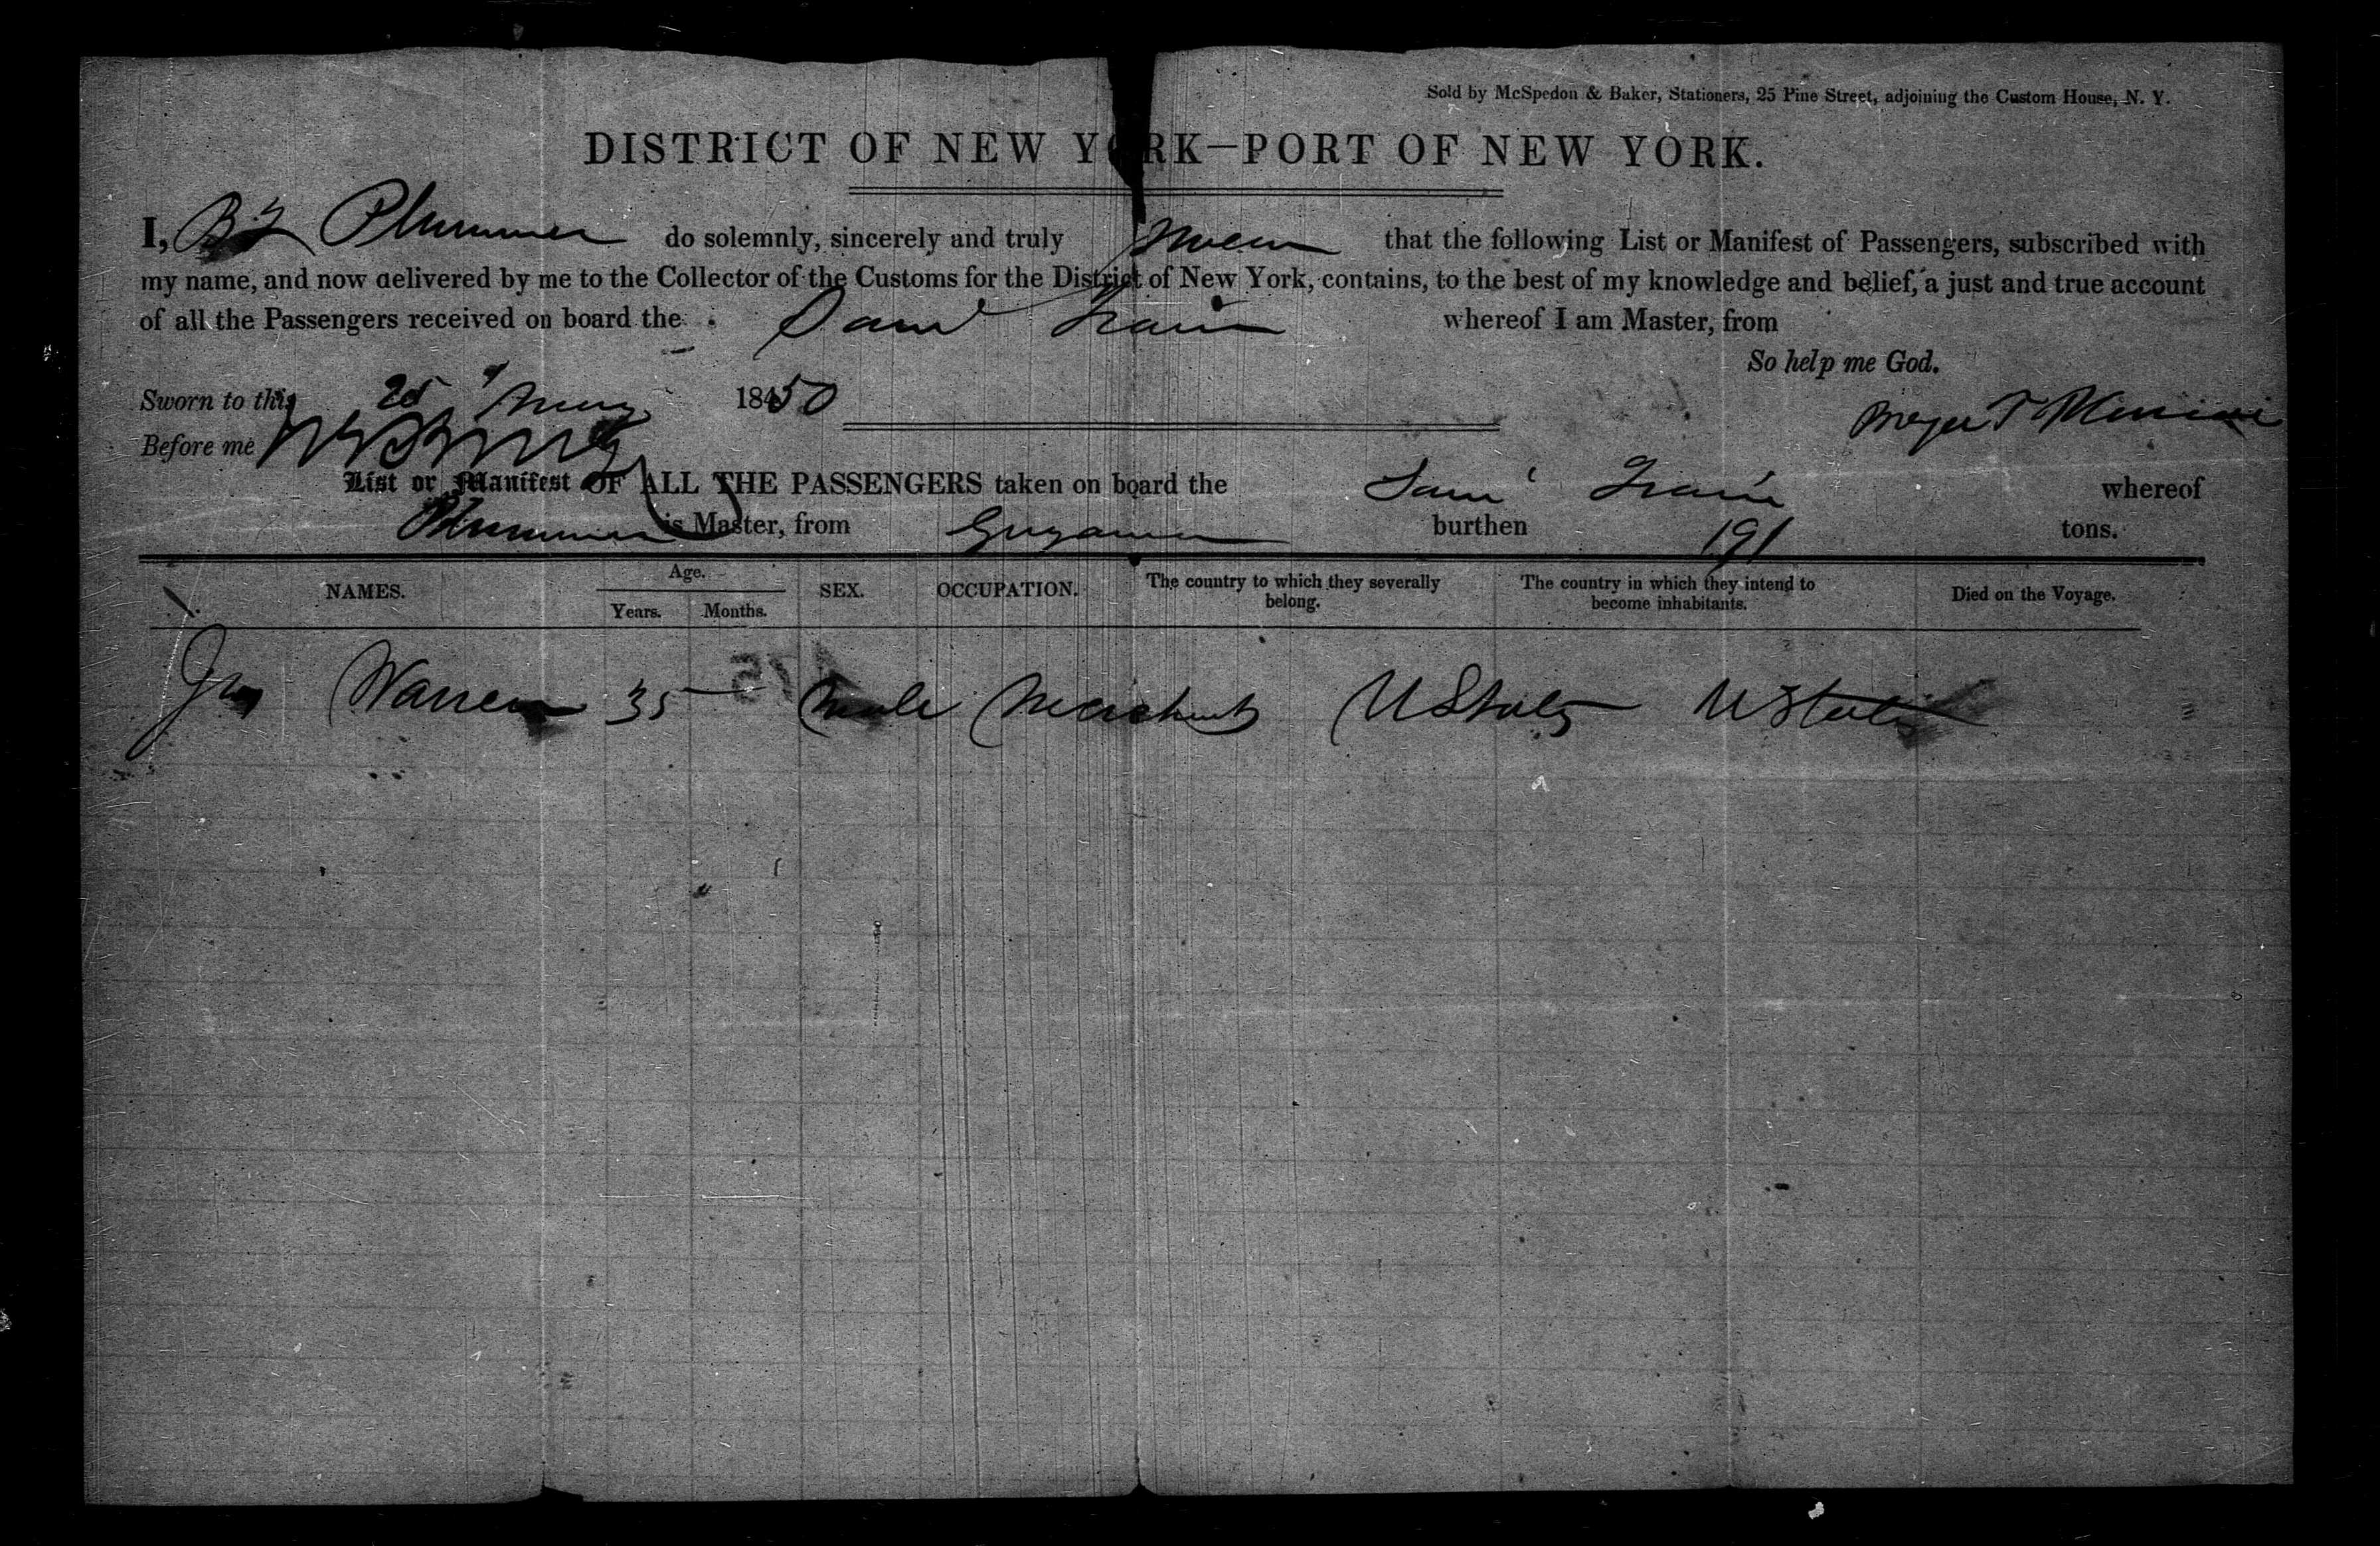 Sold by McSpedon & Baker, Stationers, 25 Pine Street, adjoining the Custom House, N. Y.
DISTRICT OF NEW YORK—PORT OF NEW YORK.
I, B T Plummer do solemnly, sincerely and truly swear that the following List or Manifest of Passengers, subscribed with
my name, and now delivered by me to the Collector of the Customs for the District of New York, contains, to the best of my knowledge and belief, a just and true account
of all the Passengers received on board the Saml Train whereof I am Master, from
So help me God.
Sworn to this 25 1850
Before me
List or Manifest OF ALL THE PASSENGERS taken on board the Saml Train whereof
Plummer is Master, from burthen 191 tons.
NAMES. Age. SEX. OCCUPATION. The country to which they severally belong. The country in which they intend to become inhabitants. Died on the Voyage.
Years. Months.
Warren 35 Male Merchant U States U States